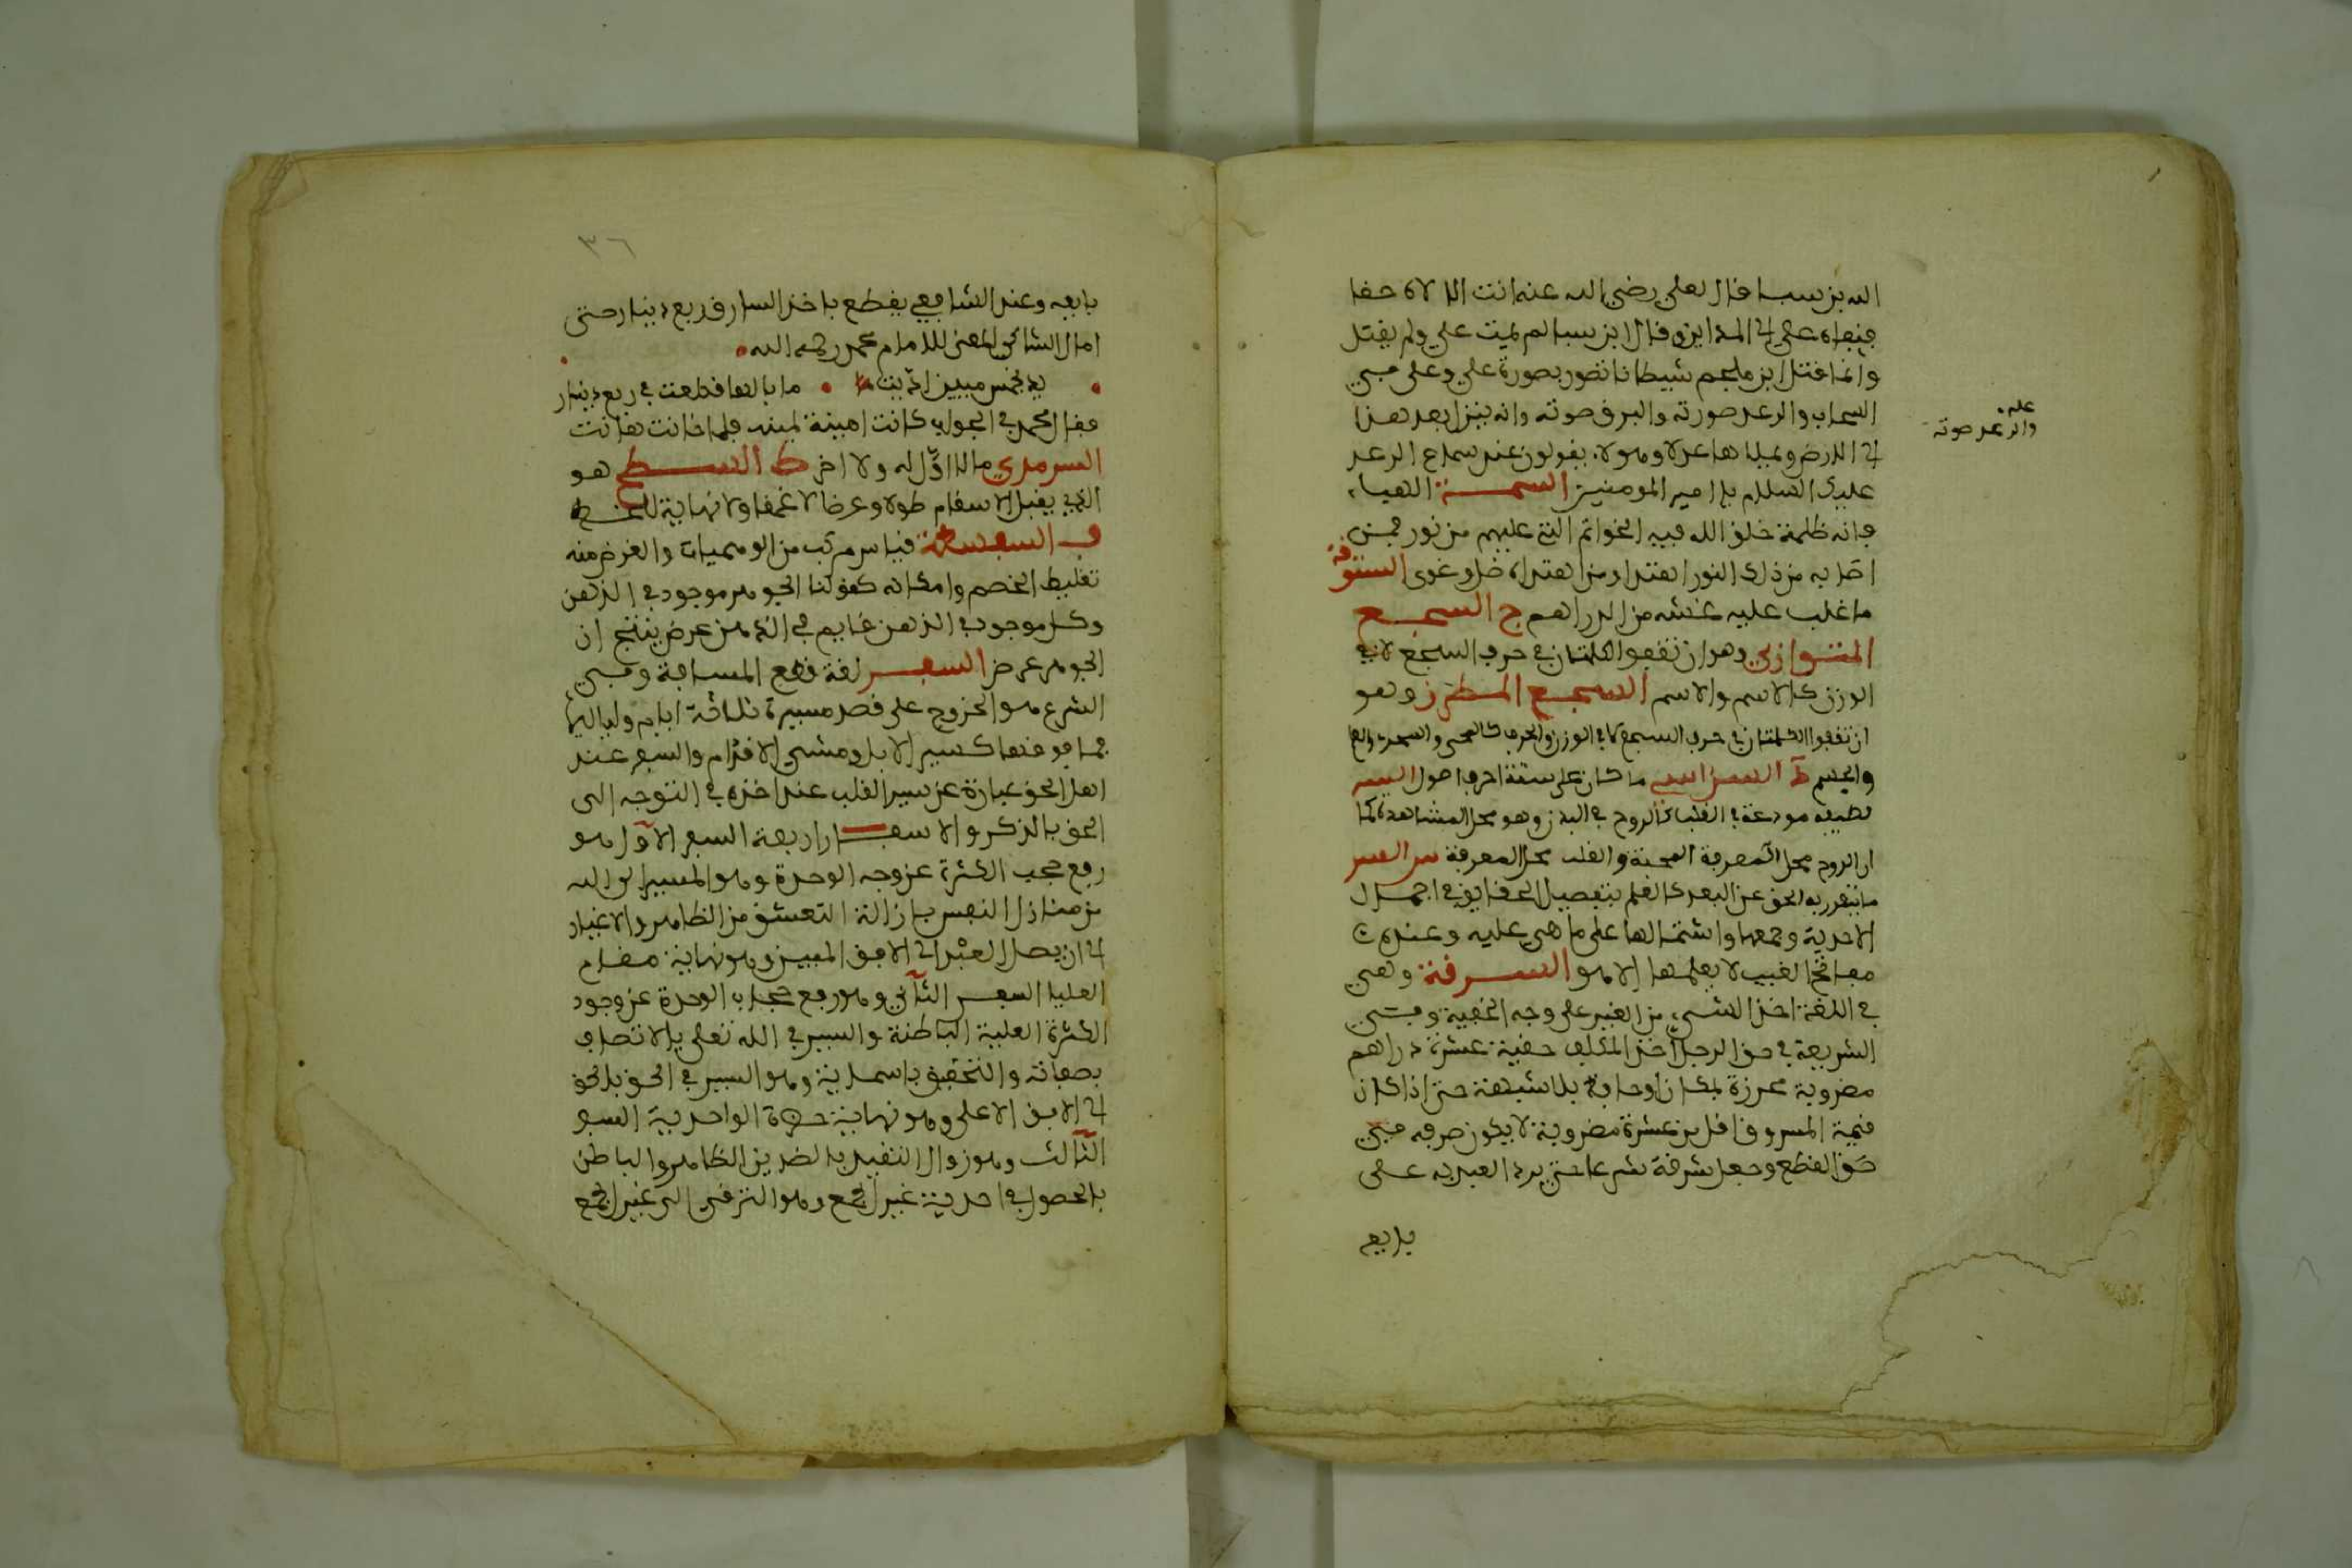 الله بن سبا قال لعلي رضي الله عنه انت الالاه حقا
فنفاه علي الى المداين وقال ابن سبا لم يمت علي ولم يقتل
وانما قتل ابن ملجم شيطانا تصور بصورة علي وعلي في
السحاب والرعد صورته والبرق صوته وانه ينزل بعد هذا
الى الارض ويملاها عدلا وهولاء يقولون عند سماع الرعد
عليك السلام يا امير المومنين السمة الهباء
فانه ظلمة خلق الله فيه الخواتم التي عليهم من نور فمن
اصابه من ذلك النور اهتدا ومن اهتداء ضل وغوى الستوقة
ما غلب عليه غشه من الدراهم ج السجع
المتوازي وهو ان تتفق الكلمتان في حرف السجع لا في
الوزن كالاسم والاسم السجع المطرز وهو
ان تتفقوا الكلمتان في حرف السجع كما في الوزن والحرف
والجسم ط السداسي ما كان على ستة احرف اصول السر
لطيفه مودعة في القلب كالروح في البدن وهو محل المشاهدة كما
ان الروح محل المعرفة المحبة والقلب محل المعرفة سر السر
ما يتفرد به الحق عن العبد كالعلم بتفصيل الحقايق في اجمال
الاحدية وجمعها واشتمالها على ما هي عليه وعنده
مفاتح الغيب لا يعلمها الا هو السرقة وهي
في اللغة اخذ الشيء من الغير على وجه الخفية وفي
الشريعة في حق الرجل اخذ المكلف خفية عشرة دراهم
مضروبة محرزة بمكان او حافظ بلا شبهة حتى اذا كان
قيمة المسروق اقل من عشرة مضروبة لا يكون سرقه في
حق القطع وجعل سرقة شرعا حتى يرد العبد به على
بايعه
عليه
والرعد صوته
٣٦
بايعه وعند الشافعي يقطع باخذ السارق ربع دينار حتى
امال الشاعر المعري للامام محمد رحمه الله
يد بخمس ميين وديت ما بالها قطعت في ربع دينار
فقال محمد في الجواب كانت امينة ثمينة فلما خانت هانت
السرمدي ما لا اول له ولا اخر ط السطح هو
الذي يقبل الانقسام طولا وعرضا لا عمقا ولا نهاية للخط
ف السفسطة قياس مركب من الوهميات والغرض منه
تغليط الخصم وامكانه كقولنا الجوهر موجود في الذهن
وكل موجود في الذهن قايم في الذهن عرض ينتج ان
الجوهر عرض السفر لغة قطع المسافة وفي
الشرع هو الخروج على قصد مسيرة ثلاثة ايام ولياليها
فما فوقها كسير الابل ومشي الاقدام والسفر عند
اهل الحق عبارة عن سير القلب عند اخذه في التوجه الى
الحق بالذكر والاسفار اربعة السفر الاول هو
رفع حجب الكثرة عن وجه الوحدة وهو المسير الى الله
من منازل النفس بازالة التعشق من الظاهر والاغيار
الى ان يصل العبد الى الافق المبين وهو نهاية مقام
العليا السفر الثاني وهو رفع حجاب الوحدة عن وجود
الكثرة العلية الباطنة والسير في الله تعلى بالاتصاف
بصفاته والتحقيق باسمايه وهو السير في الحق بالحق
الى الافق الاعلى وهو نهاية حضرة الواحدية السفر
الثالث وهو زوال التقييد بالضدين الظاهر والباطن
بالحصول في احدية عين الجمع وهو الترقي الى عين الجمع